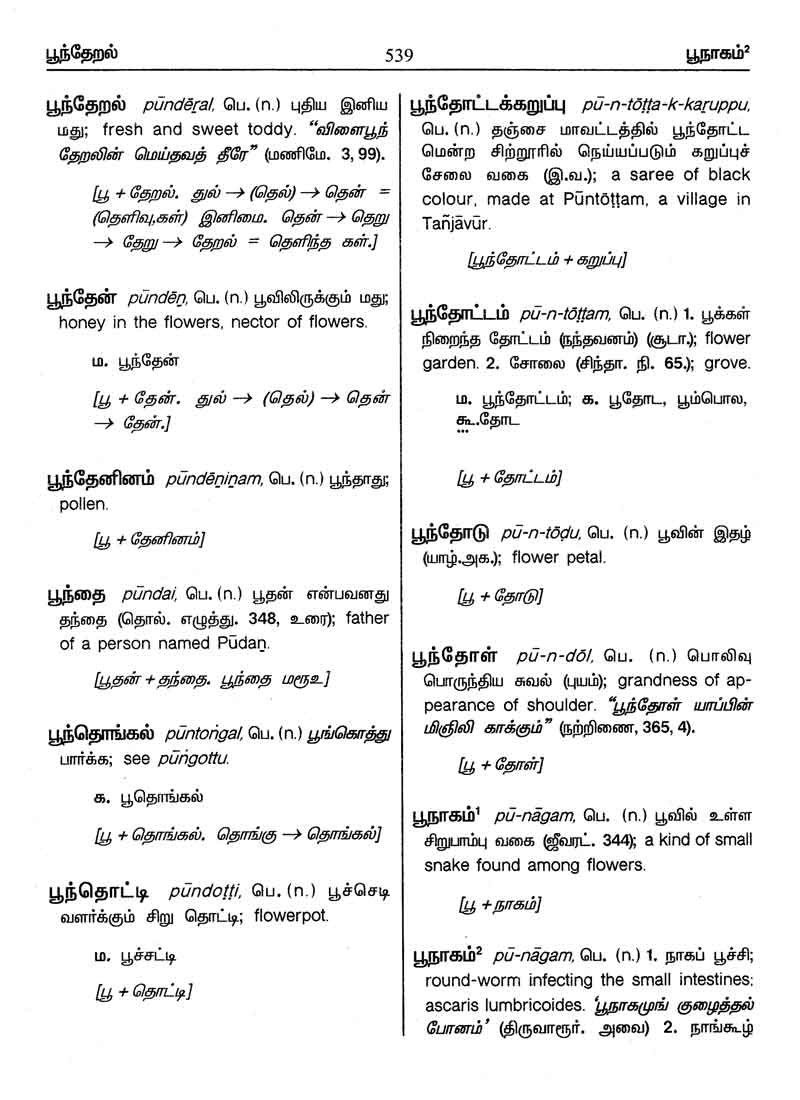 பூந்தேறல்
539
பூநாகம்²
பூந்தேறல் pūndēṟal, பெ. (n.) புதிய இனிய
மது; fresh and sweet toddy. “விளைபூந்
தேறலின் மெய்தவத் தீரே” (மணிமே. 3, 99).
[பூ + தேறல். துல் → (தெல்) → தென் =
(தெளிவு,கள்) இனிமை. தென் → தெறு
→ தேறு → தேறல் = தெளிந்த கள்.]
பூந்தேன் pūndēṉ, பெ. (n.) பூவிலிருக்கும் மது;
honey in the flowers, nector of flowers.
ம. பூந்தேன்
[பூ + தேன். துல் → (தெல்) → தென்
→ தேன்.]
பூந்தேனினம் pūndēṉiṉam, பெ. (n.) பூந்தாது;
pollen.
[பூ + தேனினம்]
பூந்தை pūndai, பெ. (n.) பூதன் என்பவனது
தந்தை (தொல். எழுத்து. 348, உரை); father
of a person named Pūdaṉ.
[பூதன் + தந்தை. பூந்தை மரூஉ]
பூந்தொங்கல் pūntoṅgal, பெ. (n.) பூங்கொத்து
பார்க்க; see pūṅgottu.
க. பூதொங்கல்
[பூ + தொங்கல். தொங்கு → தொங்கல்]
பூந்தொட்டி pūndoṭṭi, பெ. (n.) பூச்செடி
வளர்க்கும் சிறு தொட்டி; flowerpot.
ம. பூச்சட்டி
[பூ + தொட்டி]
பூந்தோட்டக்கறுப்பு pū-n-tōṭṭa-k-kaṟuppu,
பெ. (n.) தஞ்சை மாவட்டத்தில் பூந்தோட்ட
மென்ற சிற்றூரில் நெய்யப்படும் கறுப்புச்
சேலை வகை (இ.வ.); a saree of black
colour, made at Pūntōṭṭam, a village in
Tañjāvūr.
[பூந்தோட்டம் + கறுப்பு]
பூந்தோட்டம் pū-n-tōṭṭam, பெ. (n.) 1. பூக்கள்
நிறைந்த தோட்டம் (நந்தவனம்) (சூடா.); flower
garden. 2. சோலை (சிந்தா. நி. 65.); grove.
ம. பூந்தோட்டம்; க. பூதோட, பூம்பொல,
கூ.தோட
[பூ + தோட்டம்]
பூந்தோடு pū-n-tōḍu, பெ. (n.) பூவின் இதழ்
(யாழ்.அக.); flower petal.
[பூ + தோடு]
பூந்தோள் pū-n-dōl, பெ. (n.) பொலிவு
பொருந்திய சுவல் (புயம்); grandness of ap-
pearance of shoulder. “பூந்தோள் யாப்பின்
மிஞிலி காக்கும்” (நற்றிணை, 365, 4).
[பூ + தோள்]
பூநாகம்¹ pū-nāgam, பெ. (n.) பூவில் உள்ள
சிறுபாம்பு வகை (ஜீவரட். 344); a kind of small
snake found among flowers.
[பூ +நாகம்]
பூநாகம்² pū-nāgam, பெ. (n.) 1. நாகப் பூச்சி;
round-worm infecting the small intestines;
ascaris lumbricoides. ‘பூநாகமுங் குழைத்தல்
போனம்’ (திருவாரூர். அவை) 2. நாங்கூழ்